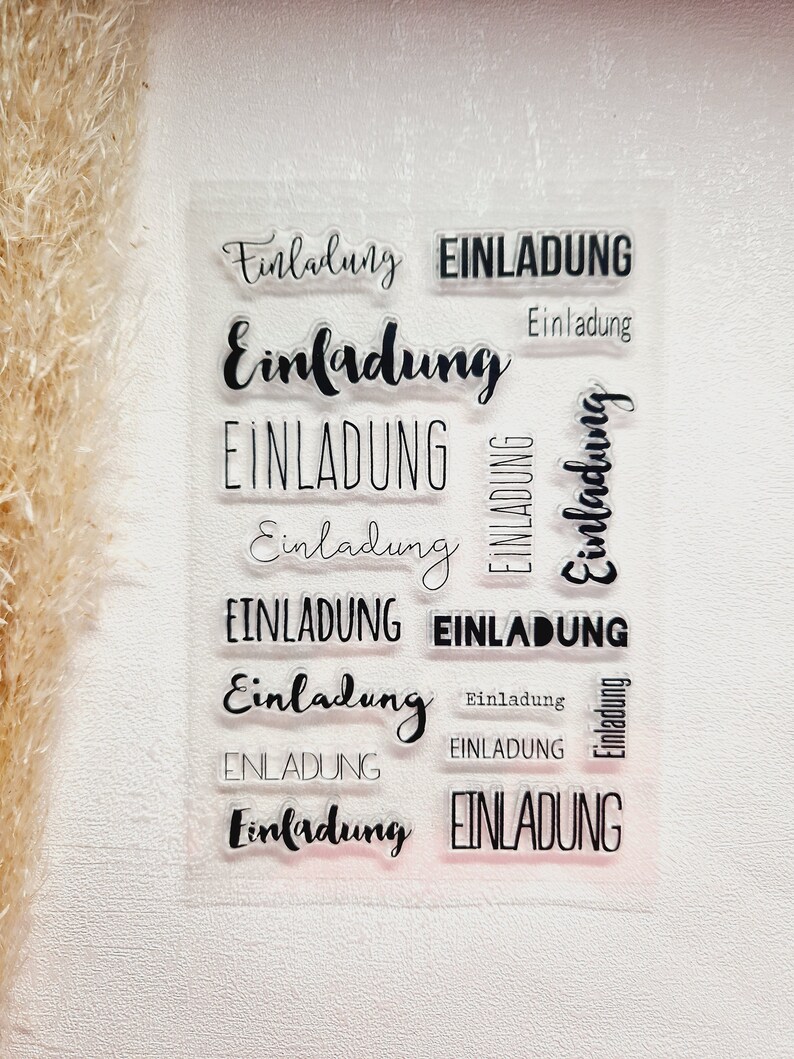 Einladung
EINLADUNG
Einladung
Einladung
EiNLADUNG
EiNLADUNG
Einladung
Einladung
EINLADUNG
EINLADUNG
Einladung
Einladung
Einladung
ENLADUNG
EINLADUNG
Einladung
EINLADUNG